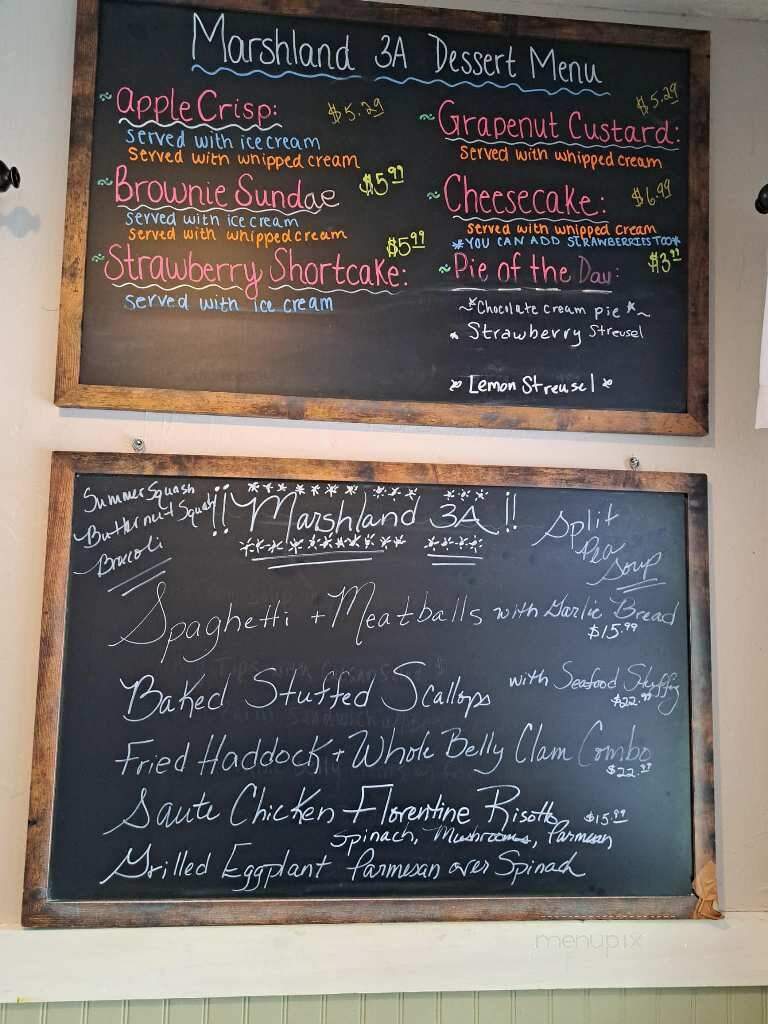 Marshland 3A Dessert Menu
~ Apple Crisp: $5.29
served with ice cream
served with whipped cream
~ Brownie Sundae $5.99
served with ice cream
served with whipped cream
~ Strawberry Shortcake: $5.99
served with ice cream
~ Grapenut Custard: $5.29
served with whipped cream
~ Cheesecake: $6.99
served with whipped cream
*YOU CAN ADD STRAWBERRIES TOO*
~ Pie of the Day: $3.99
~*Chocolate cream pie*~
Strawberry Streusel
Lemon Streusel
Summer Squash
Butternut Squash
Brocoli
!! Marshland 3A !!
Split
Pea
Soup
Spaghetti + Meatballs with Garlic Bread
$15.99
Baked Stuffed Scallops with Seafood Stuffing
$22.99
Fried Haddock + Whole Belly Clam Combo
$22.99
Saute Chicken Florentine Risotto $15.99
Spinach, Mushrooms, Parmesan
Grilled Eggplant Parmesan over Spinach
menupix